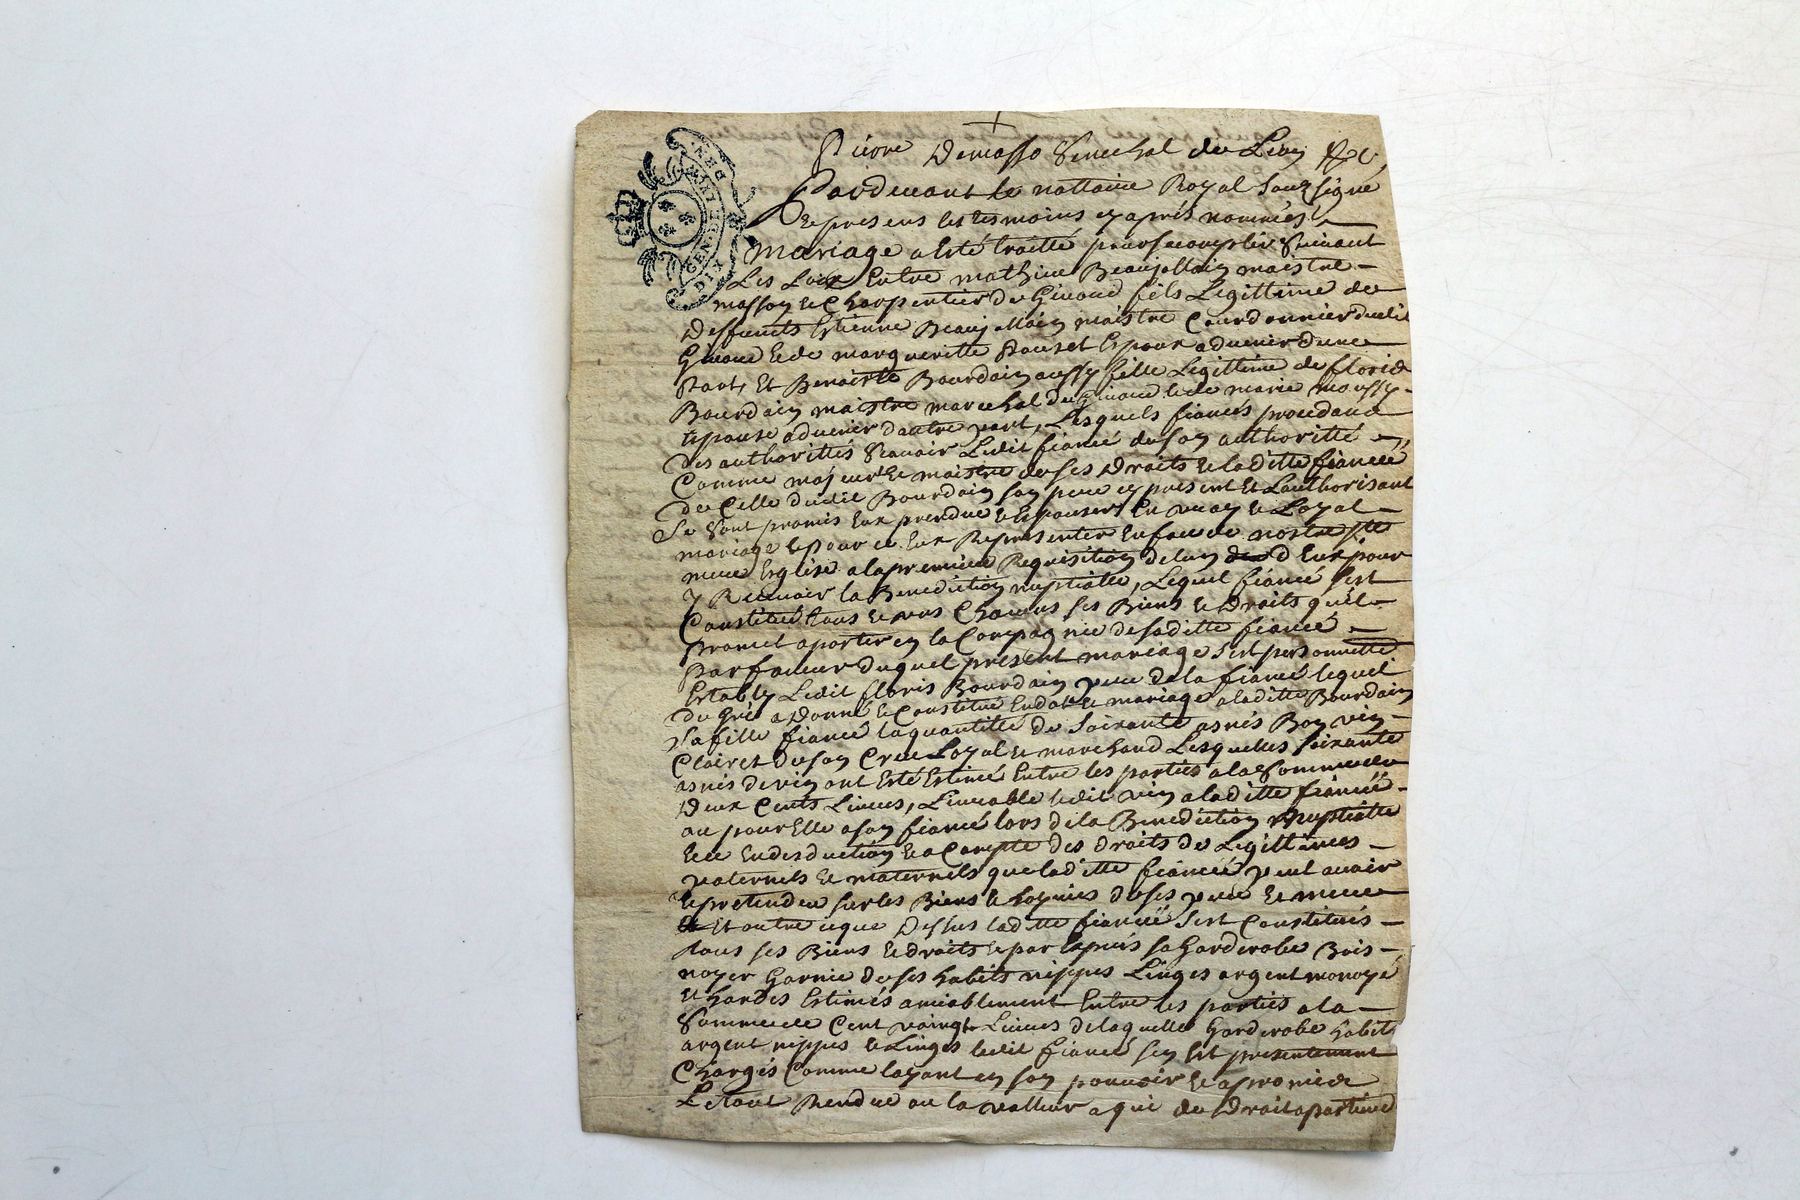 GEN. DE
DIX DEN
Pierre Demasso Senechal de Lion &c
Pardevant le nottaire Royal Soubsigné
et presens les tesmoins cy aprés nommées
mariage a esté traitté pour saccomplir Suivant
Les Loix Entre mathieu Beaujollain maistre
masson et Charpentier de Givord fils Legittime de
Deffunts Estienne Beaujollain maistre Courdonnier dudit
Givord et de margueritte Espoux advenir dune
Part, Et Benoiste Bourdain aussy fille Legittime de floris
Bourdain maistre marechal de Givord et de marie moussy
Espouse advenir dautre part, Lesquels fiancés procedant
des authorittés Scavoir Ledit fiancé de son authoritté
Comme majeur et maistre de ses Droits et laditte fiancée
de Celle dudit Bourdain son pere cy present et Lauthorisant
Se Sont promis Eux prendre et Espouser En vray et Loyal
mariage et pour ce Eux Representer En face de nostre Ste
mere Esglise a la premiere Requisition de lun deux pour
y Recevoir la Benediction nuptialle, Lequel fiancé sest
Constitué tous et uns Chacuns ses Biens et Droits quel
Promet aporter en la Compagnie de saditte fiancé
Par faveur duquel present mariage sest personnelle
Estably Ledit floris Bourdain pere de la fiancé lequel
de gré a Donné et Constitué En dot et mariage a laditte Bourdain
sa fille fiancé la quantitté de Soixante asnés Bon vin
Clairet de son Cru Loyal et marchand Lesquelles soixante
asnés de vin ont Esté Estimé Entre les parties a la Somme de
Deux Cents Livres, Livrable ledit vin a laditte fiancée
ou pour Elle a son fiancé lors de la Benediction Nuptialle
Et ce En desduction et a Compte des droits de Legittimes
paternels et maternels que laditte fiancée peut avoir
et pretendre sur les Biens et hoyries de ses pere et mere
Et outre ce que Dessus laditte fiancée sest Constitués
tous ses Biens et droits et par Exprés sa Garderobe Bois
noyer Garnie de ses habits nippes Linges argent monoyé
et hardes Estimés amiablement Entre les parties a la
Somme de Cent vaingt Livres de laquelle Garderobe habits
argent nippes et Linges ledit fiancé sen Est presentement
Chargés Comme layant en son pouvoir et a promis de
Le tout Rendre ou la valleur a qui de Droit apartiend